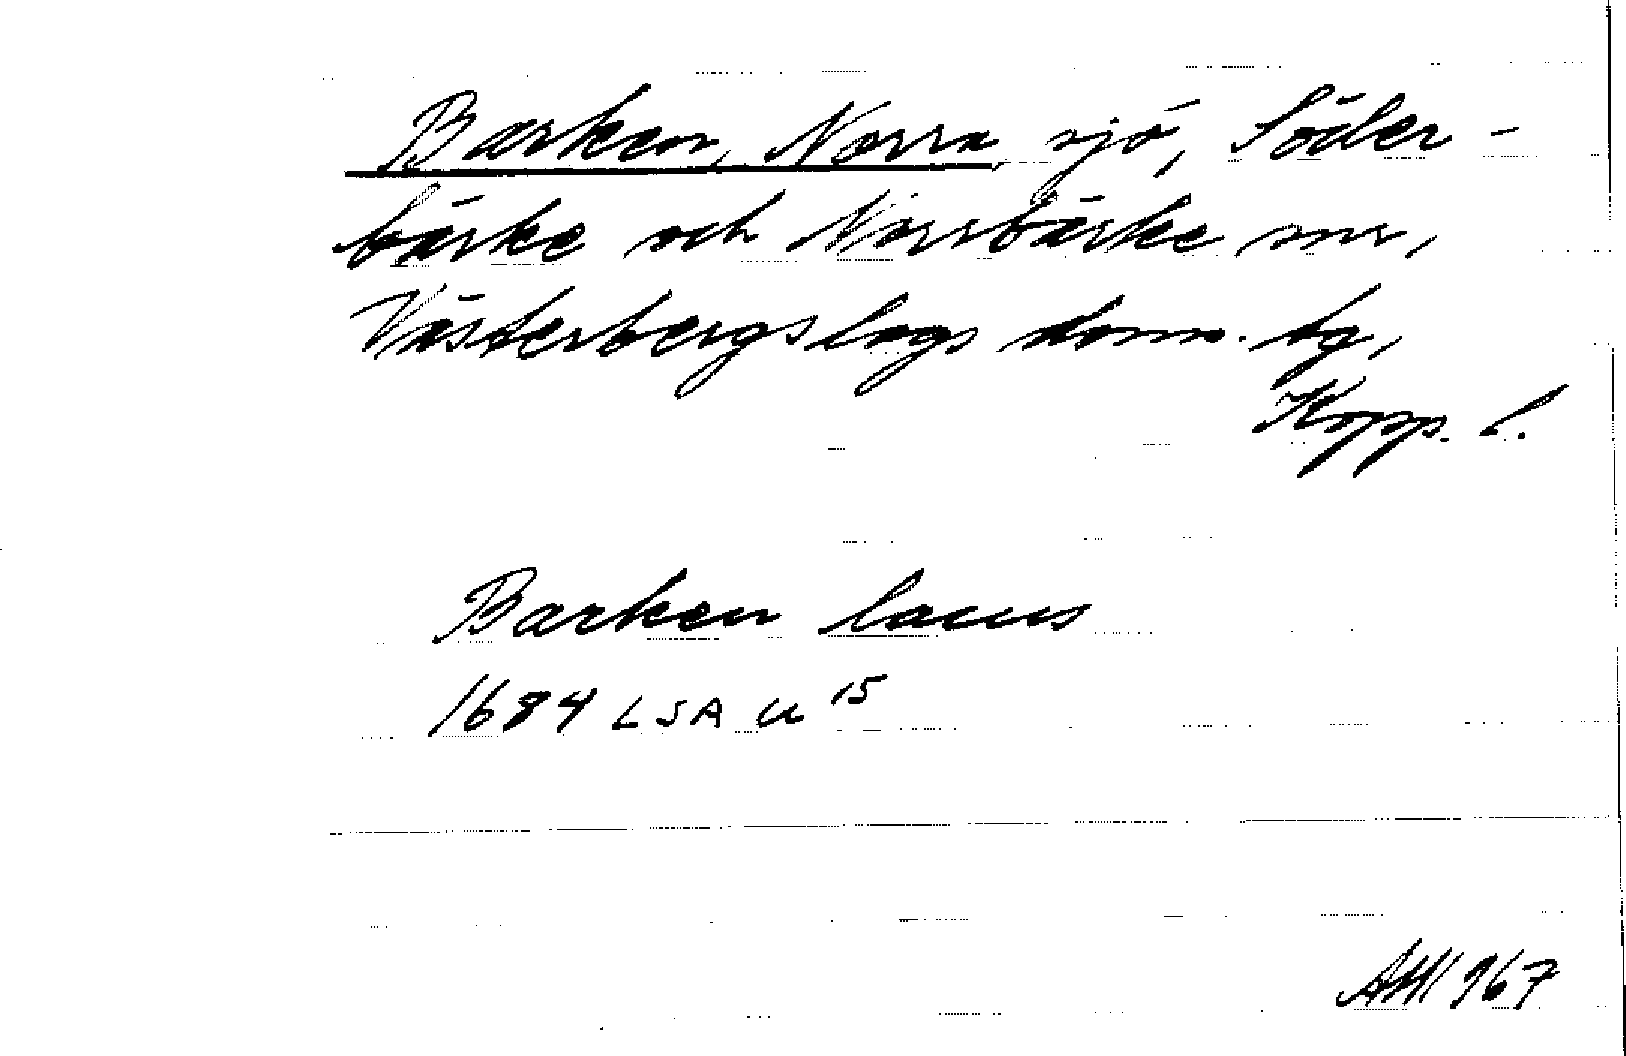 Barken, Norra, sjö, Söder-
bärke och Norrbärke snr,
Västerbergslags doms. tg,
Kopp. l.
Barken lacus
1684 LSA U 15
1967